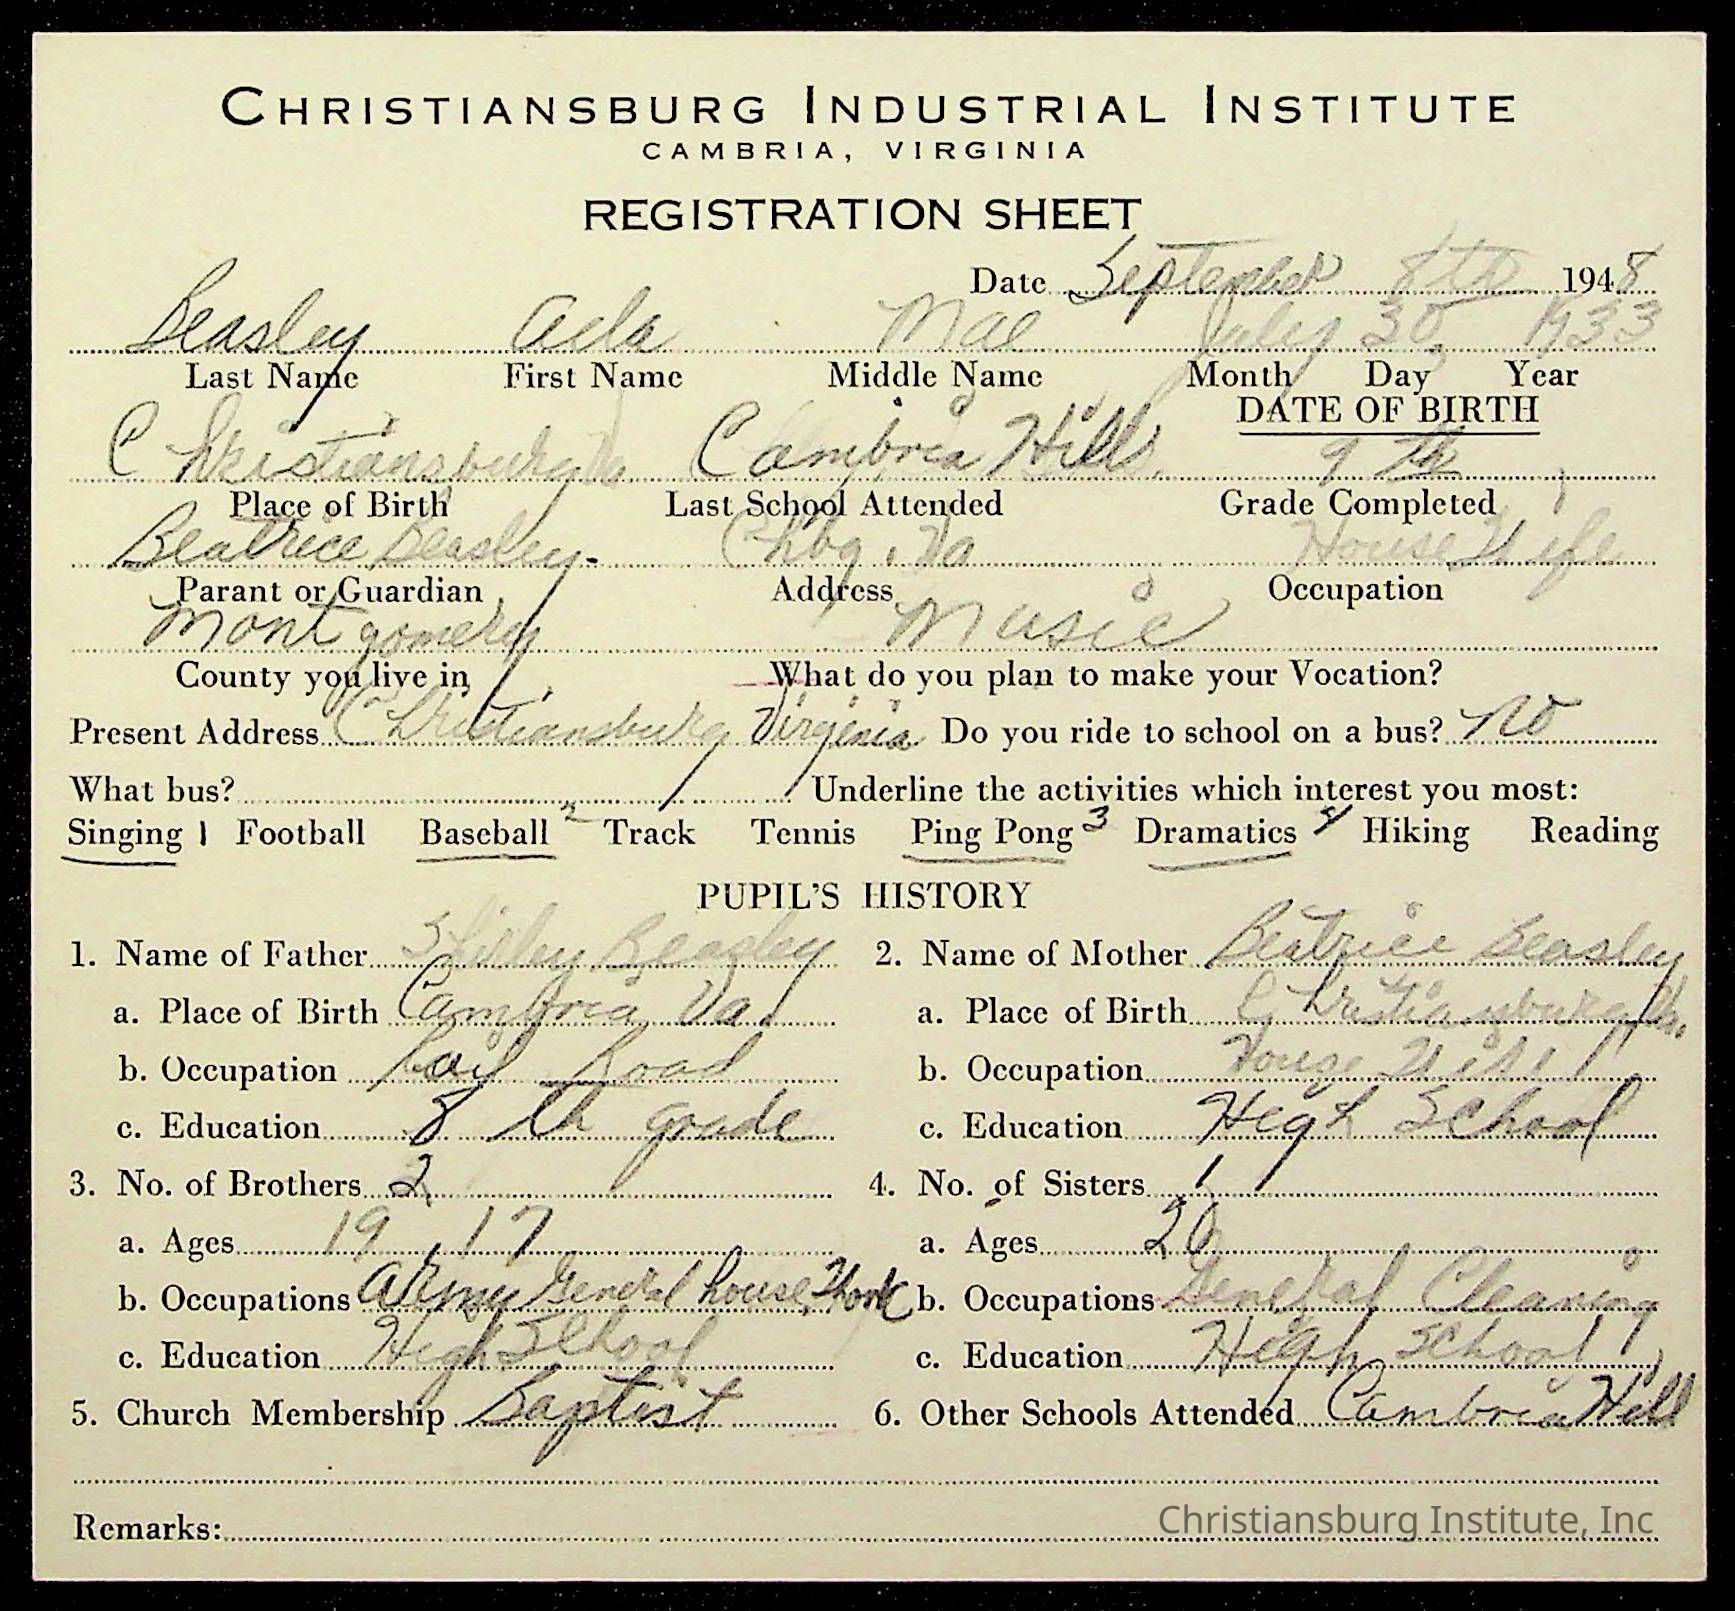 CHRISTIANSBURG INDUSTRIAL INSTITUTE
CAMBRIA, VIRGINIA
REGISTRATION SHEET
Date September 8th 1948
Beasley Ada Mae July 30, 1933
Last Name First Name Middle Name Month Day Year
DATE OF BIRTH
Christiansburg Va Cambria Hill 9th
Place of Birth Last School Attended Grade Completed
Beatrice Beasley Chbg, Va House Wife
Parant or Guardian Address Occupation
Montgomery Music
County you live in What do you plan to make your Vocation?
Present Address Christiansburg Virginia Do you ride to school on a bus? no
What bus? Underline the activities which interest you most:
Singing 1 Football Baseball 2 Track Tennis Ping Pong 3 Dramatics 4 Hiking Reading
PUPIL'S HISTORY
1. Name of Father Beasley 2. Name of Mother Beatrice Beasley
a. Place of Birth Cambria Va. a. Place of Birth Christiansburg Va.
b. Occupation Rail Road b. Occupation House Wife
c. Education 8th grade c. Education High School
3. No. of Brothers 2 4. No. of Sisters 1
a. Ages 19, 17 a. Ages 20
b. Occupations Army General house Work b. Occupations General Cleaning
c. Education High School c. Education High School
5. Church Membership Baptist 6. Other Schools Attended Cambria Hill
Remarks:
Christiansburg Institute, Inc